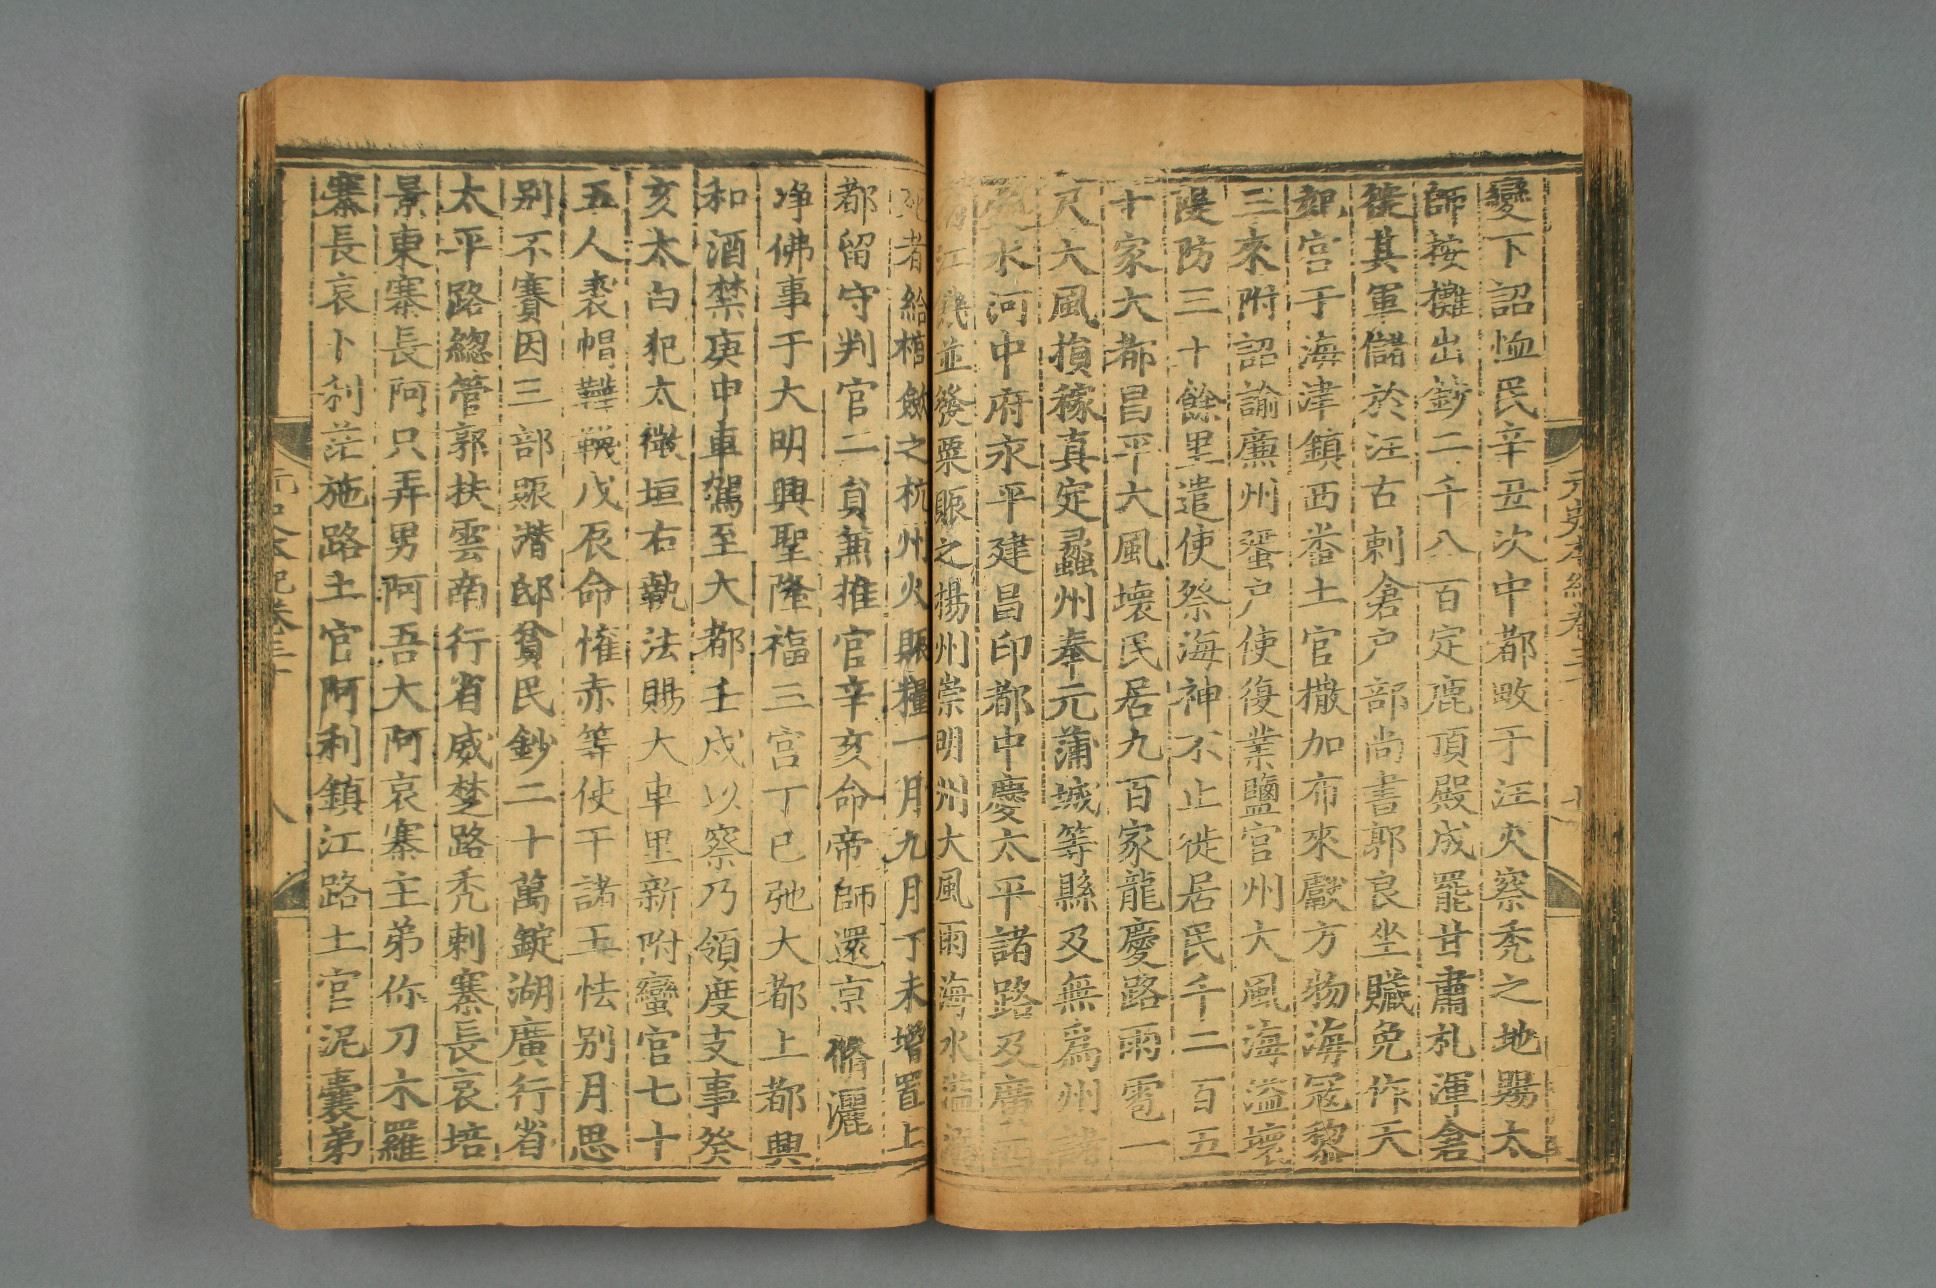 變下詔恤民辛丑次中都畋于汪火察禿之地賜太
師按攤出鈔二千八百定鹿頂殿成罷甘肅札渾倉
徙其軍儲於汪古剌倉戶部尚書郭良坐贓免作天
妃宮于海津鎮西畨土官撒加布來獻方物海寇黎
三來附詔諭廉州蜑戶使復業鹽官州大風海溢壞
隄防三十餘里遣使祭海神不止徙居民千二百五
十家大都昌平大風壞民居九百家龍慶路雨雹一
尺大風損稼真定蠡州奉元蒲城等縣及無為州諸
處水河中府永平建昌印都中慶太平諸路及廣西
兩江饑並發粟賑之揚州崇明州大風雨海水溢溺
死者給棺斂之杭州火賑糧一月九月丁未增置上
都留守判官二員兼推官辛亥命帝師還京脩灑
净佛事于大明興聖隆福三宮丁巳弛大都上都興
和酒禁庚申車駕至大都壬戌以察乃領度支事癸
亥太白犯太微垣右執法賜大車里新附蠻官七十
五人裘帽鞾韈戊辰命懽赤等使于諸王怯别月思
别不賽因三部賑潛邸貧民鈔二十萬錠湖廣行省
太平路總管郭扶雲南行省威楚路禿剌寨長哀培
景東寨長阿只弄男阿吾大阿哀寨主弟你刀木羅
寨長哀卜利茫施路土官阿利鎮江路土官泥囊弟
元史本紀卷三十
七
八